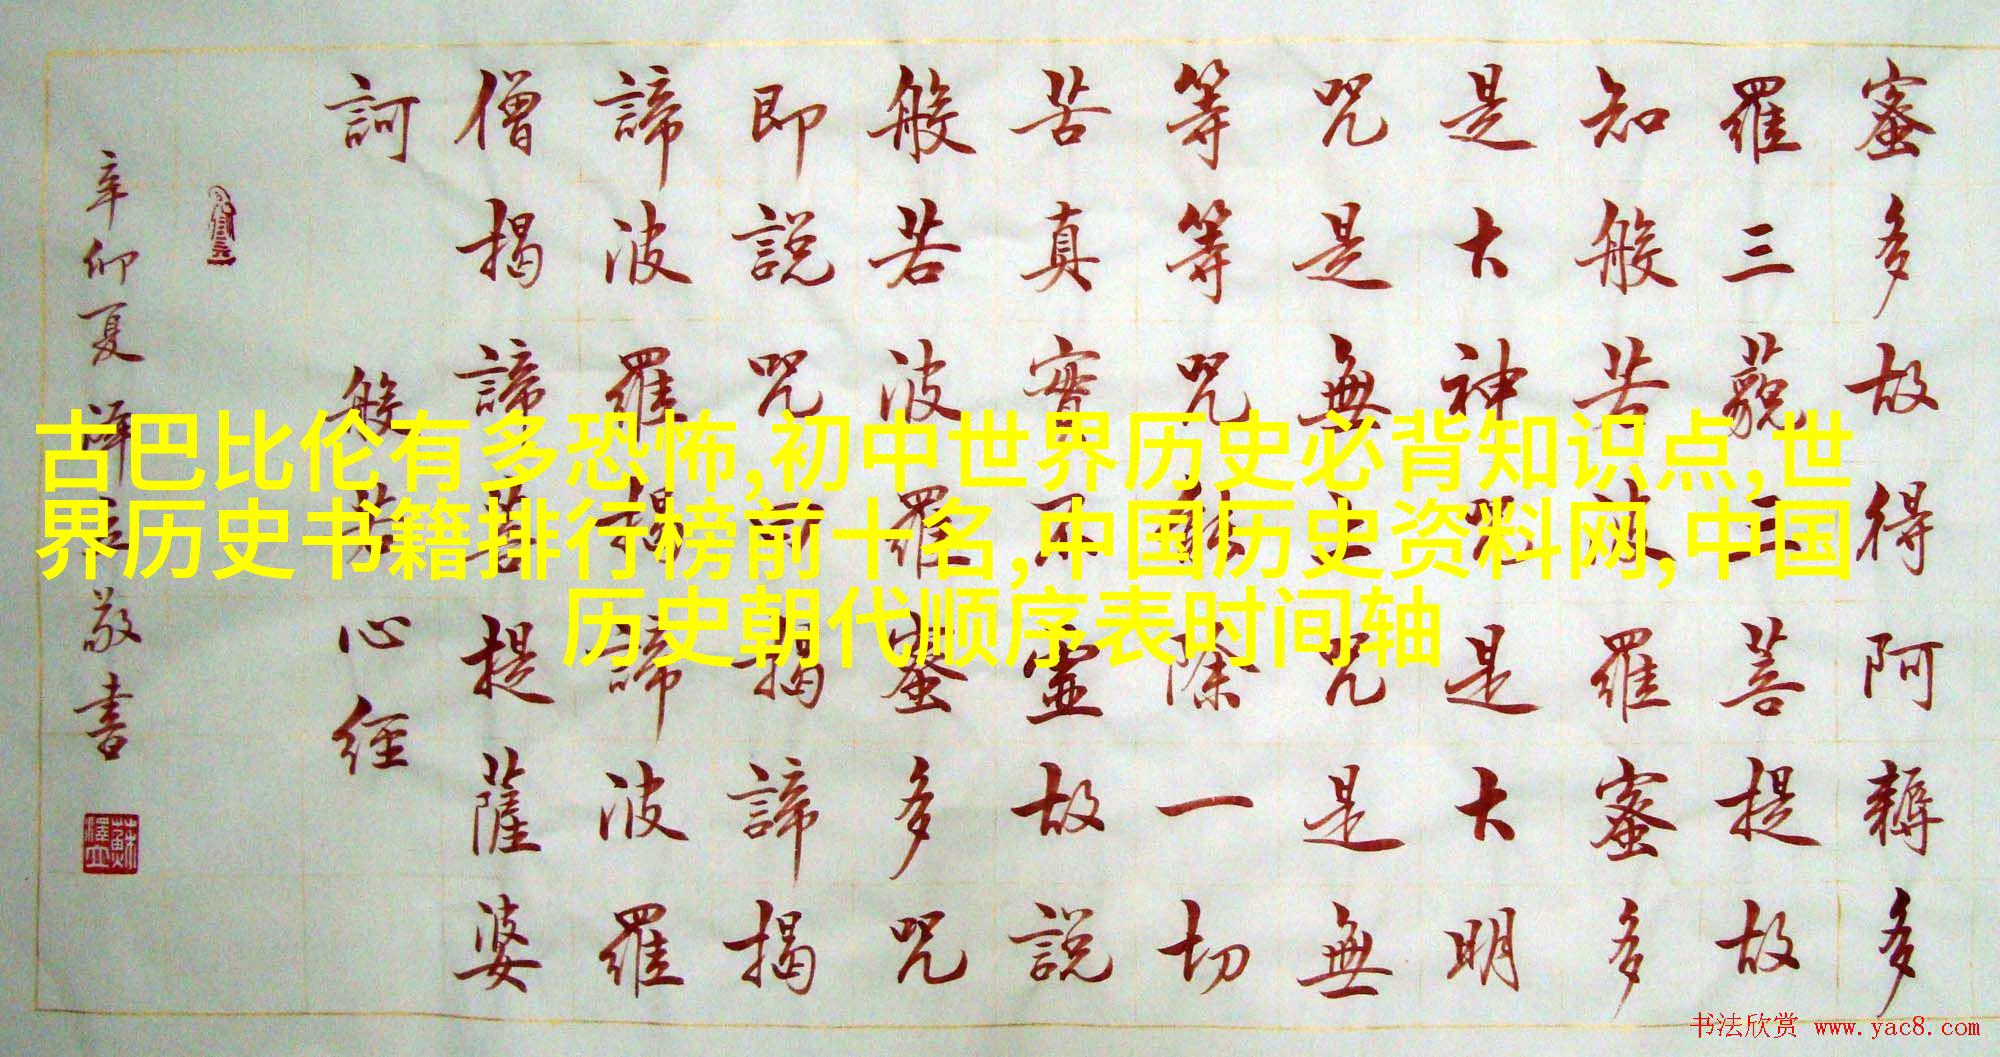 蜜多故得阿耨多
羅三藐三菩提故
知般若波羅蜜多
是大神咒是大明
咒是無上咒是無
等等咒能除一切
苦真實不虛故說
般若波羅蜜多咒
即說咒曰揭諦揭
諦波羅揭諦波羅
僧揭諦菩提薩婆
訶 般若心經
辛卯夏澤立敬書
古巴比伦有多恐怖,初中世界历史必背知识点,世
界历史书籍排行榜前十名,中国历史资料网,中国
历史朝代顺序表时间轴
书法欣赏 www.yac8.com